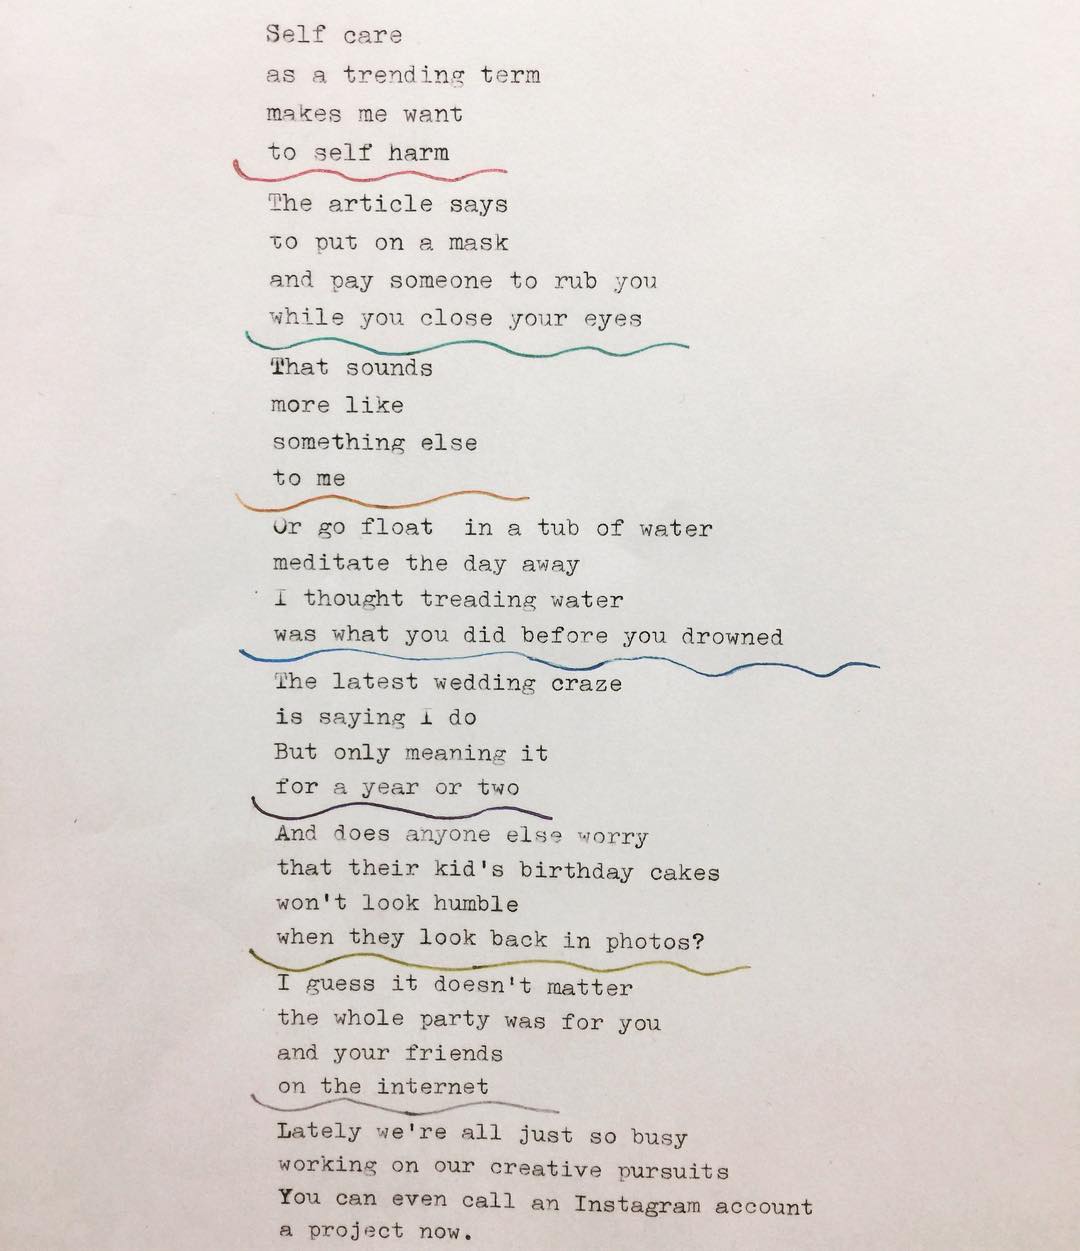 Self care
as a trending term
makes me want
to self harm
The article says
to put on a mask
and pay someone to rub you
while you close your eyes
That sounds
more like
something else
to me
Or go float in a tub of water
meditate the day away
I thought treading water
was what you did before you drowned
The latest wedding craze
is saying I do
But only meaning it
for a year or two
And does anyone else worry
that their kid's birthday cakes
won't look humble
when they look back in photos?
I guess it doesn't matter
the whole party was for you
and your friends
on the internet
Lately we're all just so busy
working on our creative pursuits
You can even call an Instagram account
a project now.